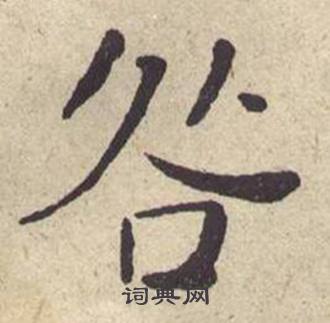 咎
词典网